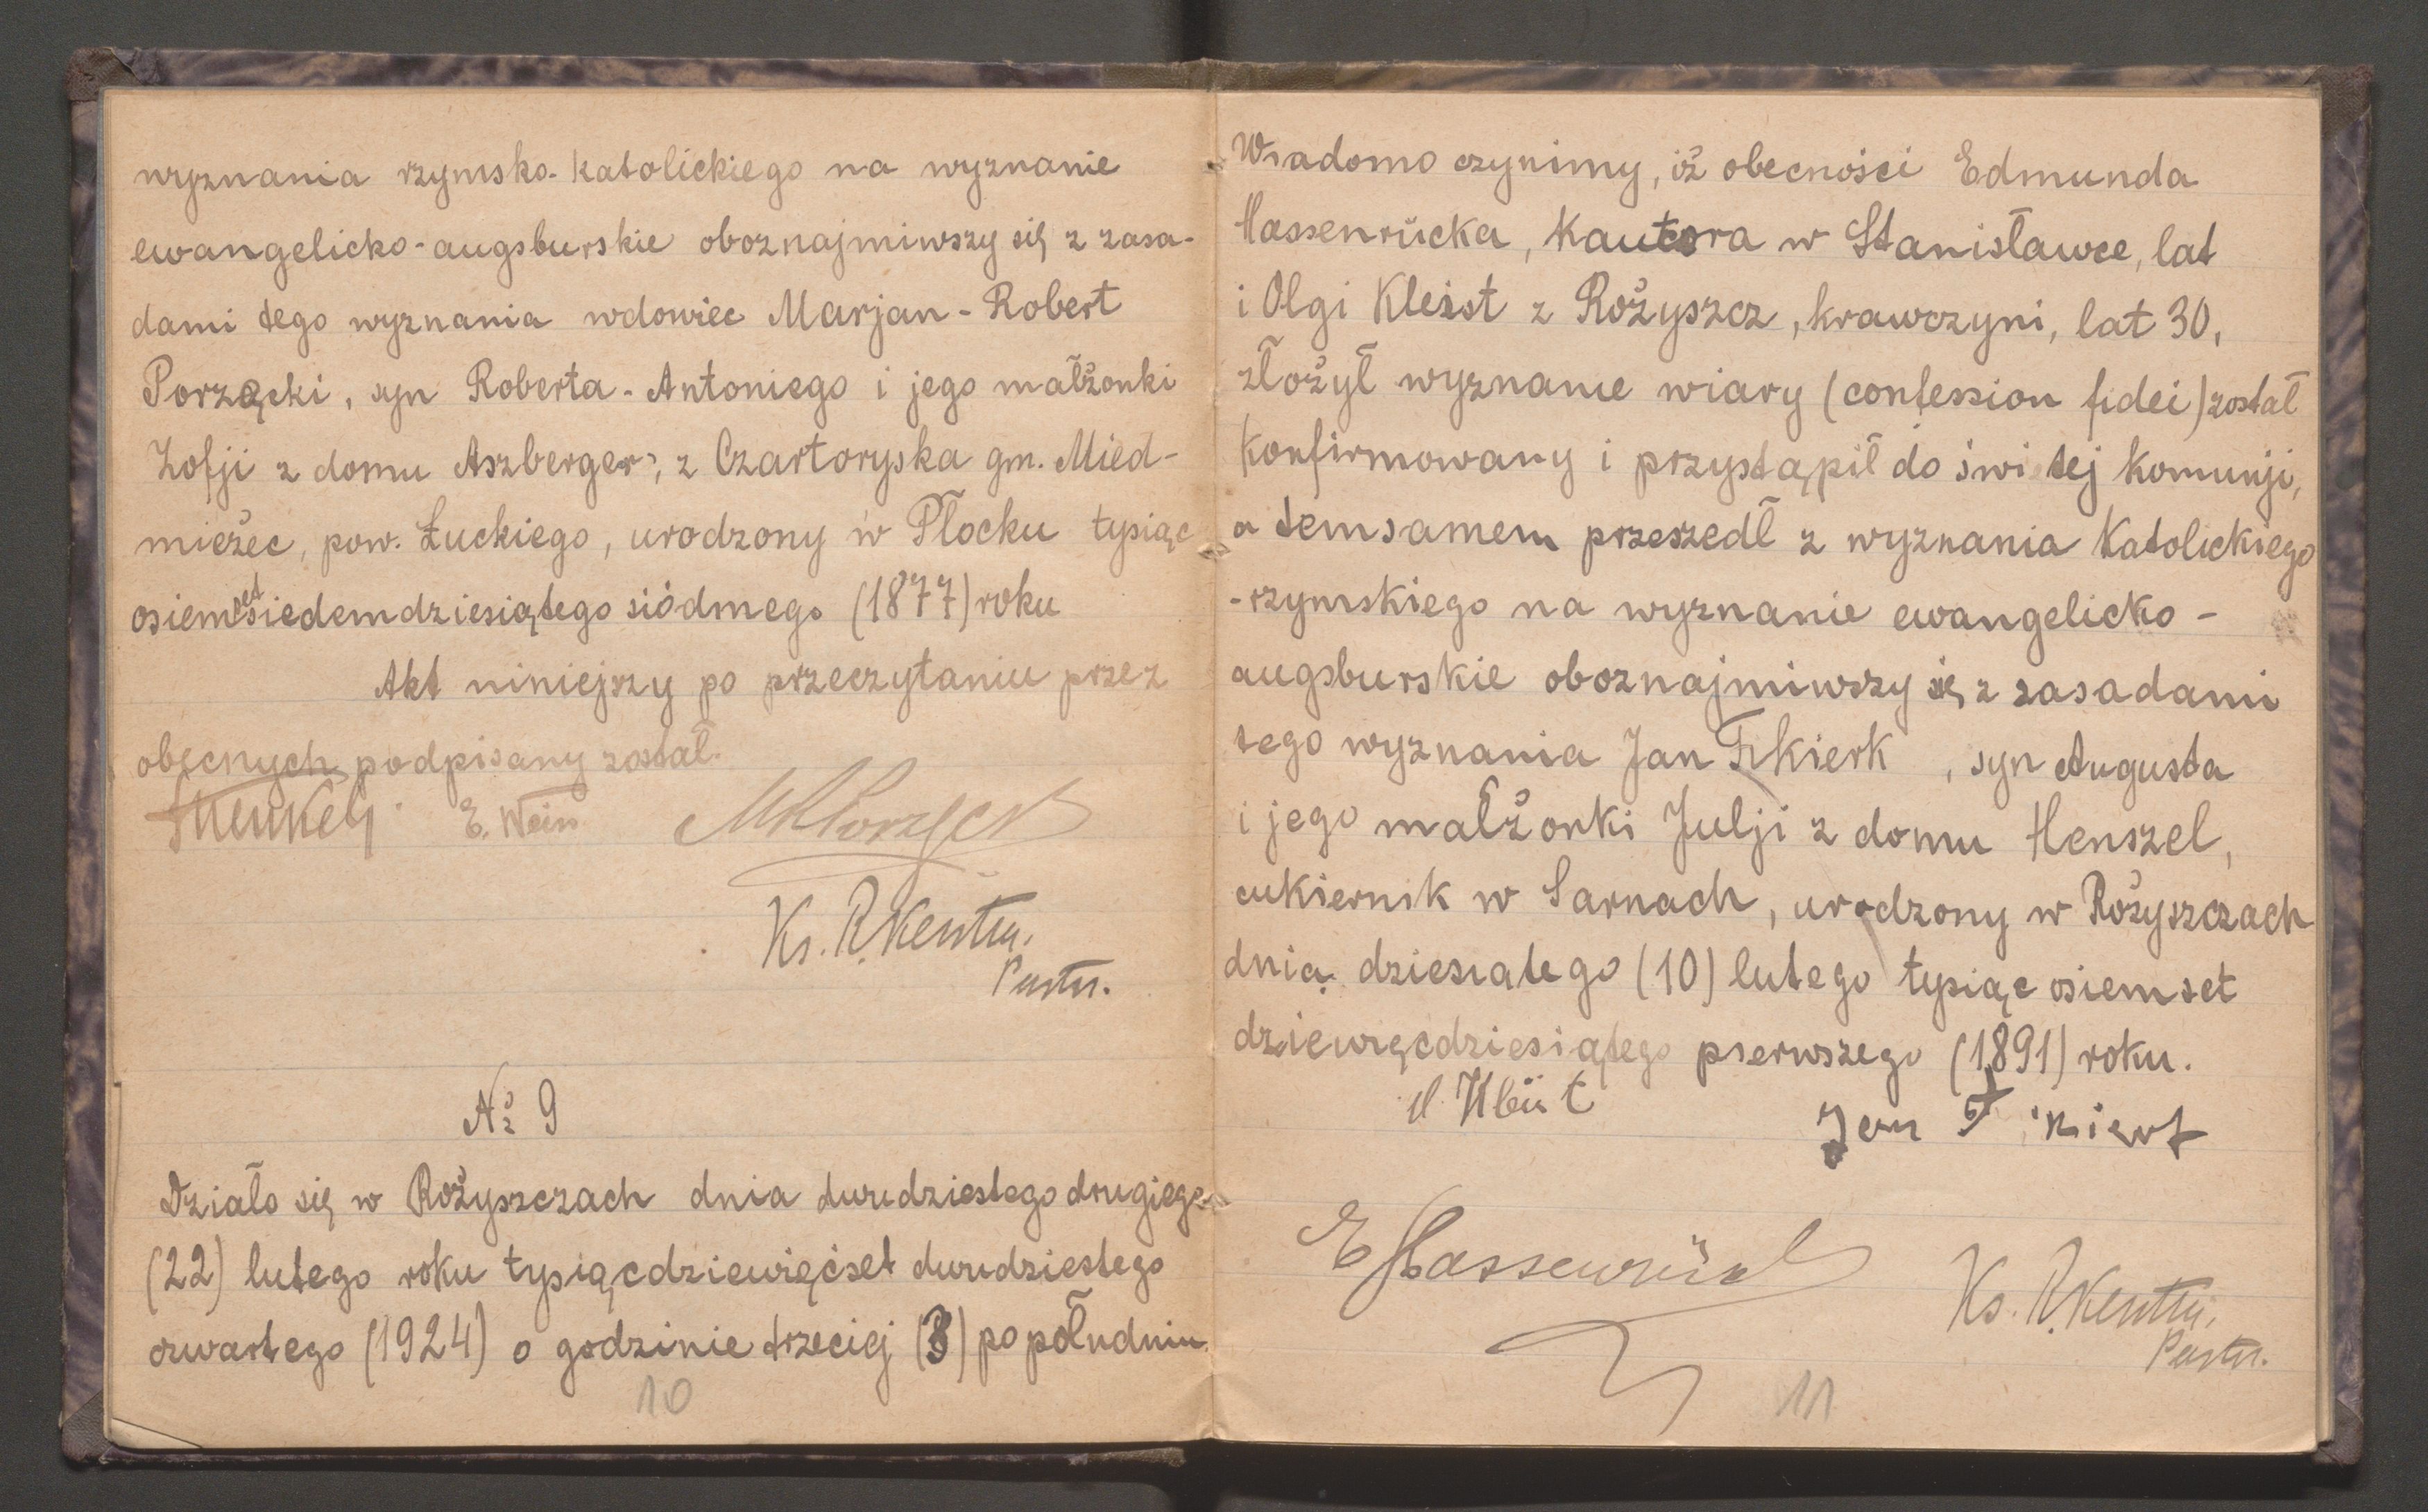 wyznania rzymsko-katolickiego na wyznanie
ewangelicko-augsburskie oboznajmiwszy się z zasa-
dami tego wyznania wdowiec Marjan-Robert
Porzącki, syn Roberta-Antoniego i jego małżonki
Zofji z domu Aszberger, z Czartoryska gm. Mied-
mieżec, pow. Łuckiego, urodzony w Płocku tysiąc
osiemset siedemdziesiątego siódmego (1877) roku
Akt niniejszy po przeczytaniu przez
obecnych podpisany został.
E. Wein
Ks. R. Kersten.
Pastor.
№ 9
Działo się w Rożyszczach dnia dwudziestego drugiego
(22) lutego roku tysiącdziewięćset dwudziestego
czwartego (1924) o godzinie trzeciej (3) po południu.
10
Wiadomo czynimy, iż obecności Edmunda
Hassenrücka, Kantora w Stanisławce, lat
i Olgi Kleist z Rożyszcz, krawczyni, lat 30,
złożył wyznanie wiary (confession fidei) został
Konfirmowany i przystąpił do świ tej Komunji,
a temsamem przeszedł z wyznania Katolickiego
-rzymskiego na wyznanie ewangelicko-
augsburskie oboznajmiwszy się z zasadami
tego wyznania Jan Fikierk, syn Augusta
i jego małżonki Julji z domu Henszel,
cukiernik w Sarnach, urodzony w Rożyszczach
dnia dziesiatego (10) lutego tysiąc osiemset
dziewięćdziesiątego pierwszego (1891) roku.
Jan
E Hassenrück
Ks. R. Kersten.
Pastor.
11